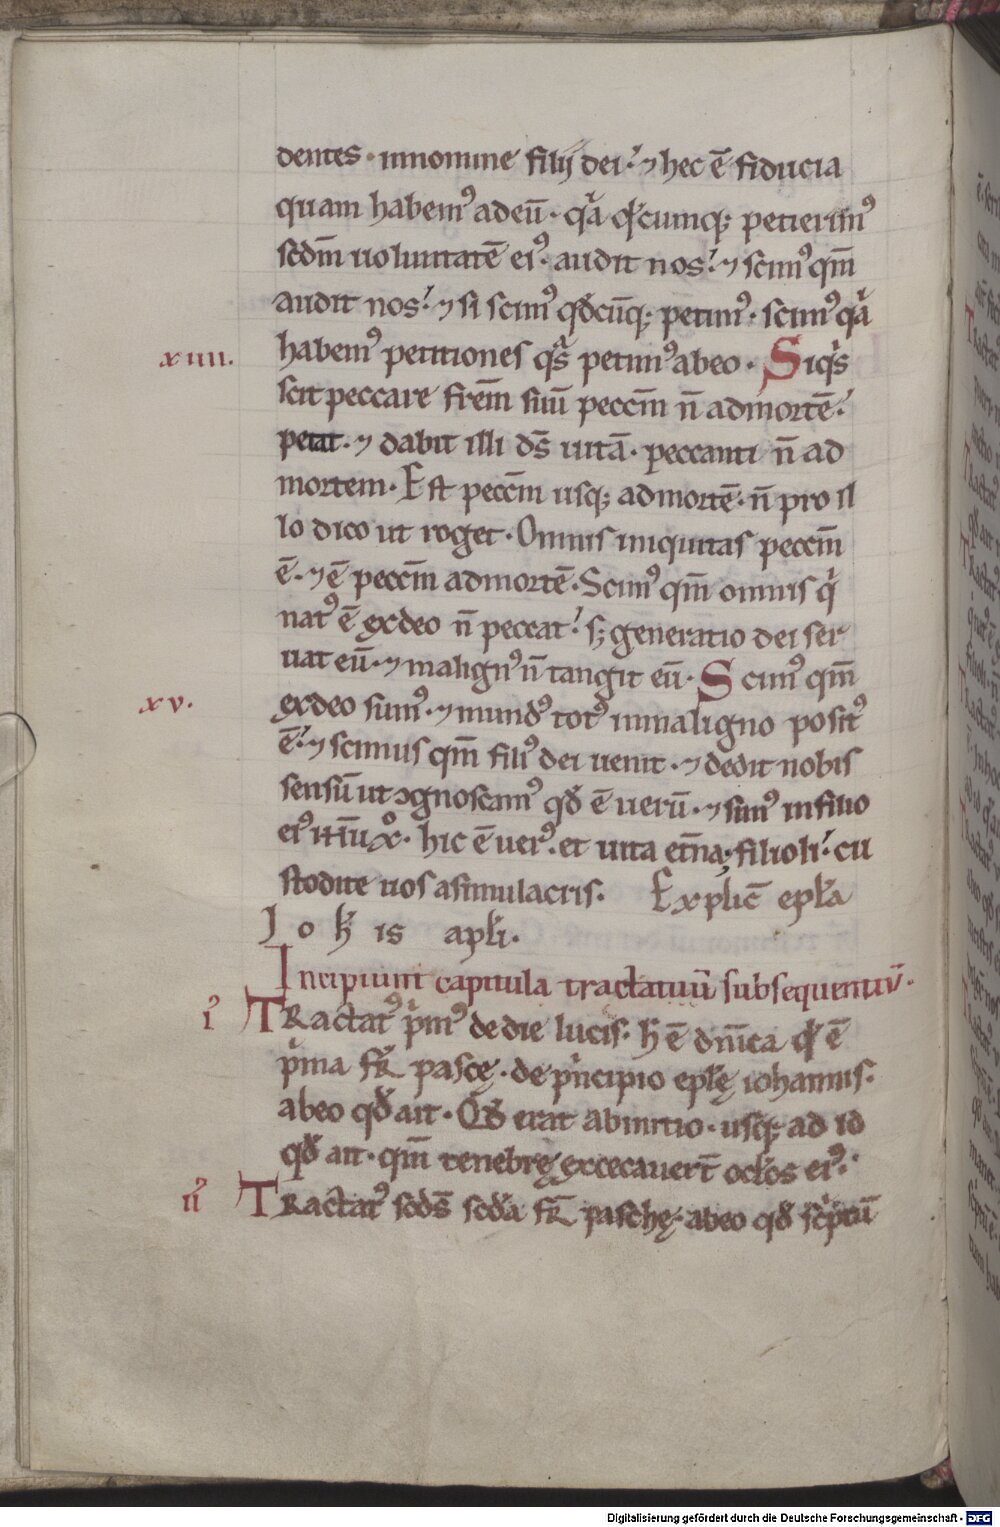 dentes · innomine filij dei · ⁊ hec ē fiducia
quam habemꝰ adeū · qͣa qͦcumq; petierimꝰ
scdm̄ uoluntatē eiꝰ · audit nos · ⁊ scimꝰ qm̄
audit nos · ⁊ si scimꝰ qđcūq; petimꝰ · scimꝰ qͣa
xiiii. habemꝰ petitiones qͣs petimꝰ abeo · Siqͥs
scit peccare frem̄ suū peccm̄ n̄ admortē ·
petat · ⁊ dabit illi ds̄ uitā · peccanti n̄ ad
mortem · Est peccm̄ usq; admortē · n̄ pro il
lo dico ut roget · Omnis iniquitas peccm̄
ē · ⁊ ē peccm̄ admortē · Scimꝰ qm̄ omnis qͥ
natꝰ ē exdeo n̄ peccat · s; generatio dei ser
uat eū · ⁊ malignꝰ n̄ tangit eū · Scimꝰ qm̄
xv. exdeo sumꝰ · ⁊ mundꝰ totꝰ inmaligno positꝰ
ē · ⁊ scimus qm̄ filiꝰ dei uenit · ⁊ dedit nobis
sensū ut ↄgnoscamꝰ qđ ē uerū · ⁊ simꝰ infilio
eiꝰ ihū xͦ · hic ē uerꝰ · et uita et̄na · filioli · cu
stodite uos asimulacris · Explic̄ epl̄a
Ioh̄is apl̄i ·
Incipiunt capitula tractatuū subsequentiū ·
i Tractatꝰ pͥmꝰ dedie lucis · h̄ ē dn̄ica qͥ ē
pͥma fr̄ pascę · de pͥncipio epl̄ę iohannis ·
abeo qđ ait · Qđ erat abinitio · usq; ad id
qđ ait · qm̄ tenebrę excecauert̄ ocl̄os eiꝰ ·
ii Tractatꝰ scds̄ scđa fr̄ paschę · abeo qđ scͥptū